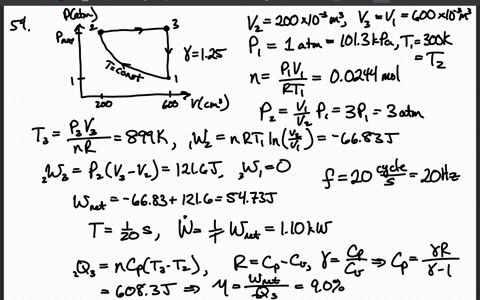 59.
P(atm)
Pmax
1
2
3
1
T=const
γ=1.25
200
600
V(cm³)
V₂=200×10⁻⁶m³, V₃=V₁=600×10⁻⁶m³
P₁=1atm=101.3kPa, T₁=300K
=T₂
n=P₁V₁/RT₁=0.0244mol
P₂=V₁/V₂ P₁=3P₁=3atm
T₃=P₃V₃/nR=899K, ₁W₂=nRT₁ln(V₂/V₁)=-66.83J
₂W₃=P₂(V₃-V₂)=121.6J, ₃W₁=0
f=20 cycle/s=20Hz
Wnet=-66.83+121.6=54.73J
T=1/20 s, Ẇ=1/T Wnet=1.10kW
₂Q₃=nCp(T₃-T₂), R=Cp-Cv, γ=Cp/Cv⇒Cp=γR/γ-1
=608.3J⇒η=Wnet/₂Q₃=9.0%